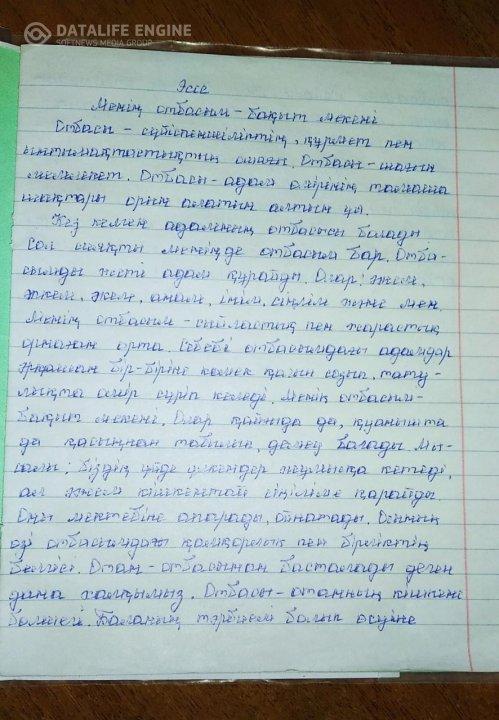 DATALIFE ENGINE
SOFTNEWS MEDIA GROUP
Эссе
Менің отбасым - бақыт мекені
Отбасы - сүйіспеншіліктің, құрмет пен
ынтымақтастықтың ошағы. Отбасы - шағын
мемлекет. Отбасы - адам өмірінің тамаша
шақтары орын алатын алтын ұя.
Кез келген адамның отбасысы болады
Сол сияқты менің де отбасым бар. Отба-
сымды жеті адам құрайды. Олар: әжем,
әкем, анам, інім, сіңлім және мен.
Менің отбасым - сыйластық пен жарастық
орнаған орта. Себебі отбасымдағы адамдар
бір-біріне көмек қолын созып, тату-
лықта өмір сүріп келеді. Менің отбасым-
бақыт мекені. Олар қайғыда да, қуанышта
да қасыңнан табылып, демеу болады. Мы-
салы: біздің үйде үлкендер жұмысқа кетеді,
ал әжем кішкентай сіңіліме қарайды.
Оны мектебіне апарады, ойнатады. Осының
өзі отбасымдағы қамқорлық пен бірліктің
белгісі. Отан - отбасынан басталады деген
дана халқымыз. Отбасы - отанның кішкене
бөлшегі. Баланың тәрбиелі болып өсуіне